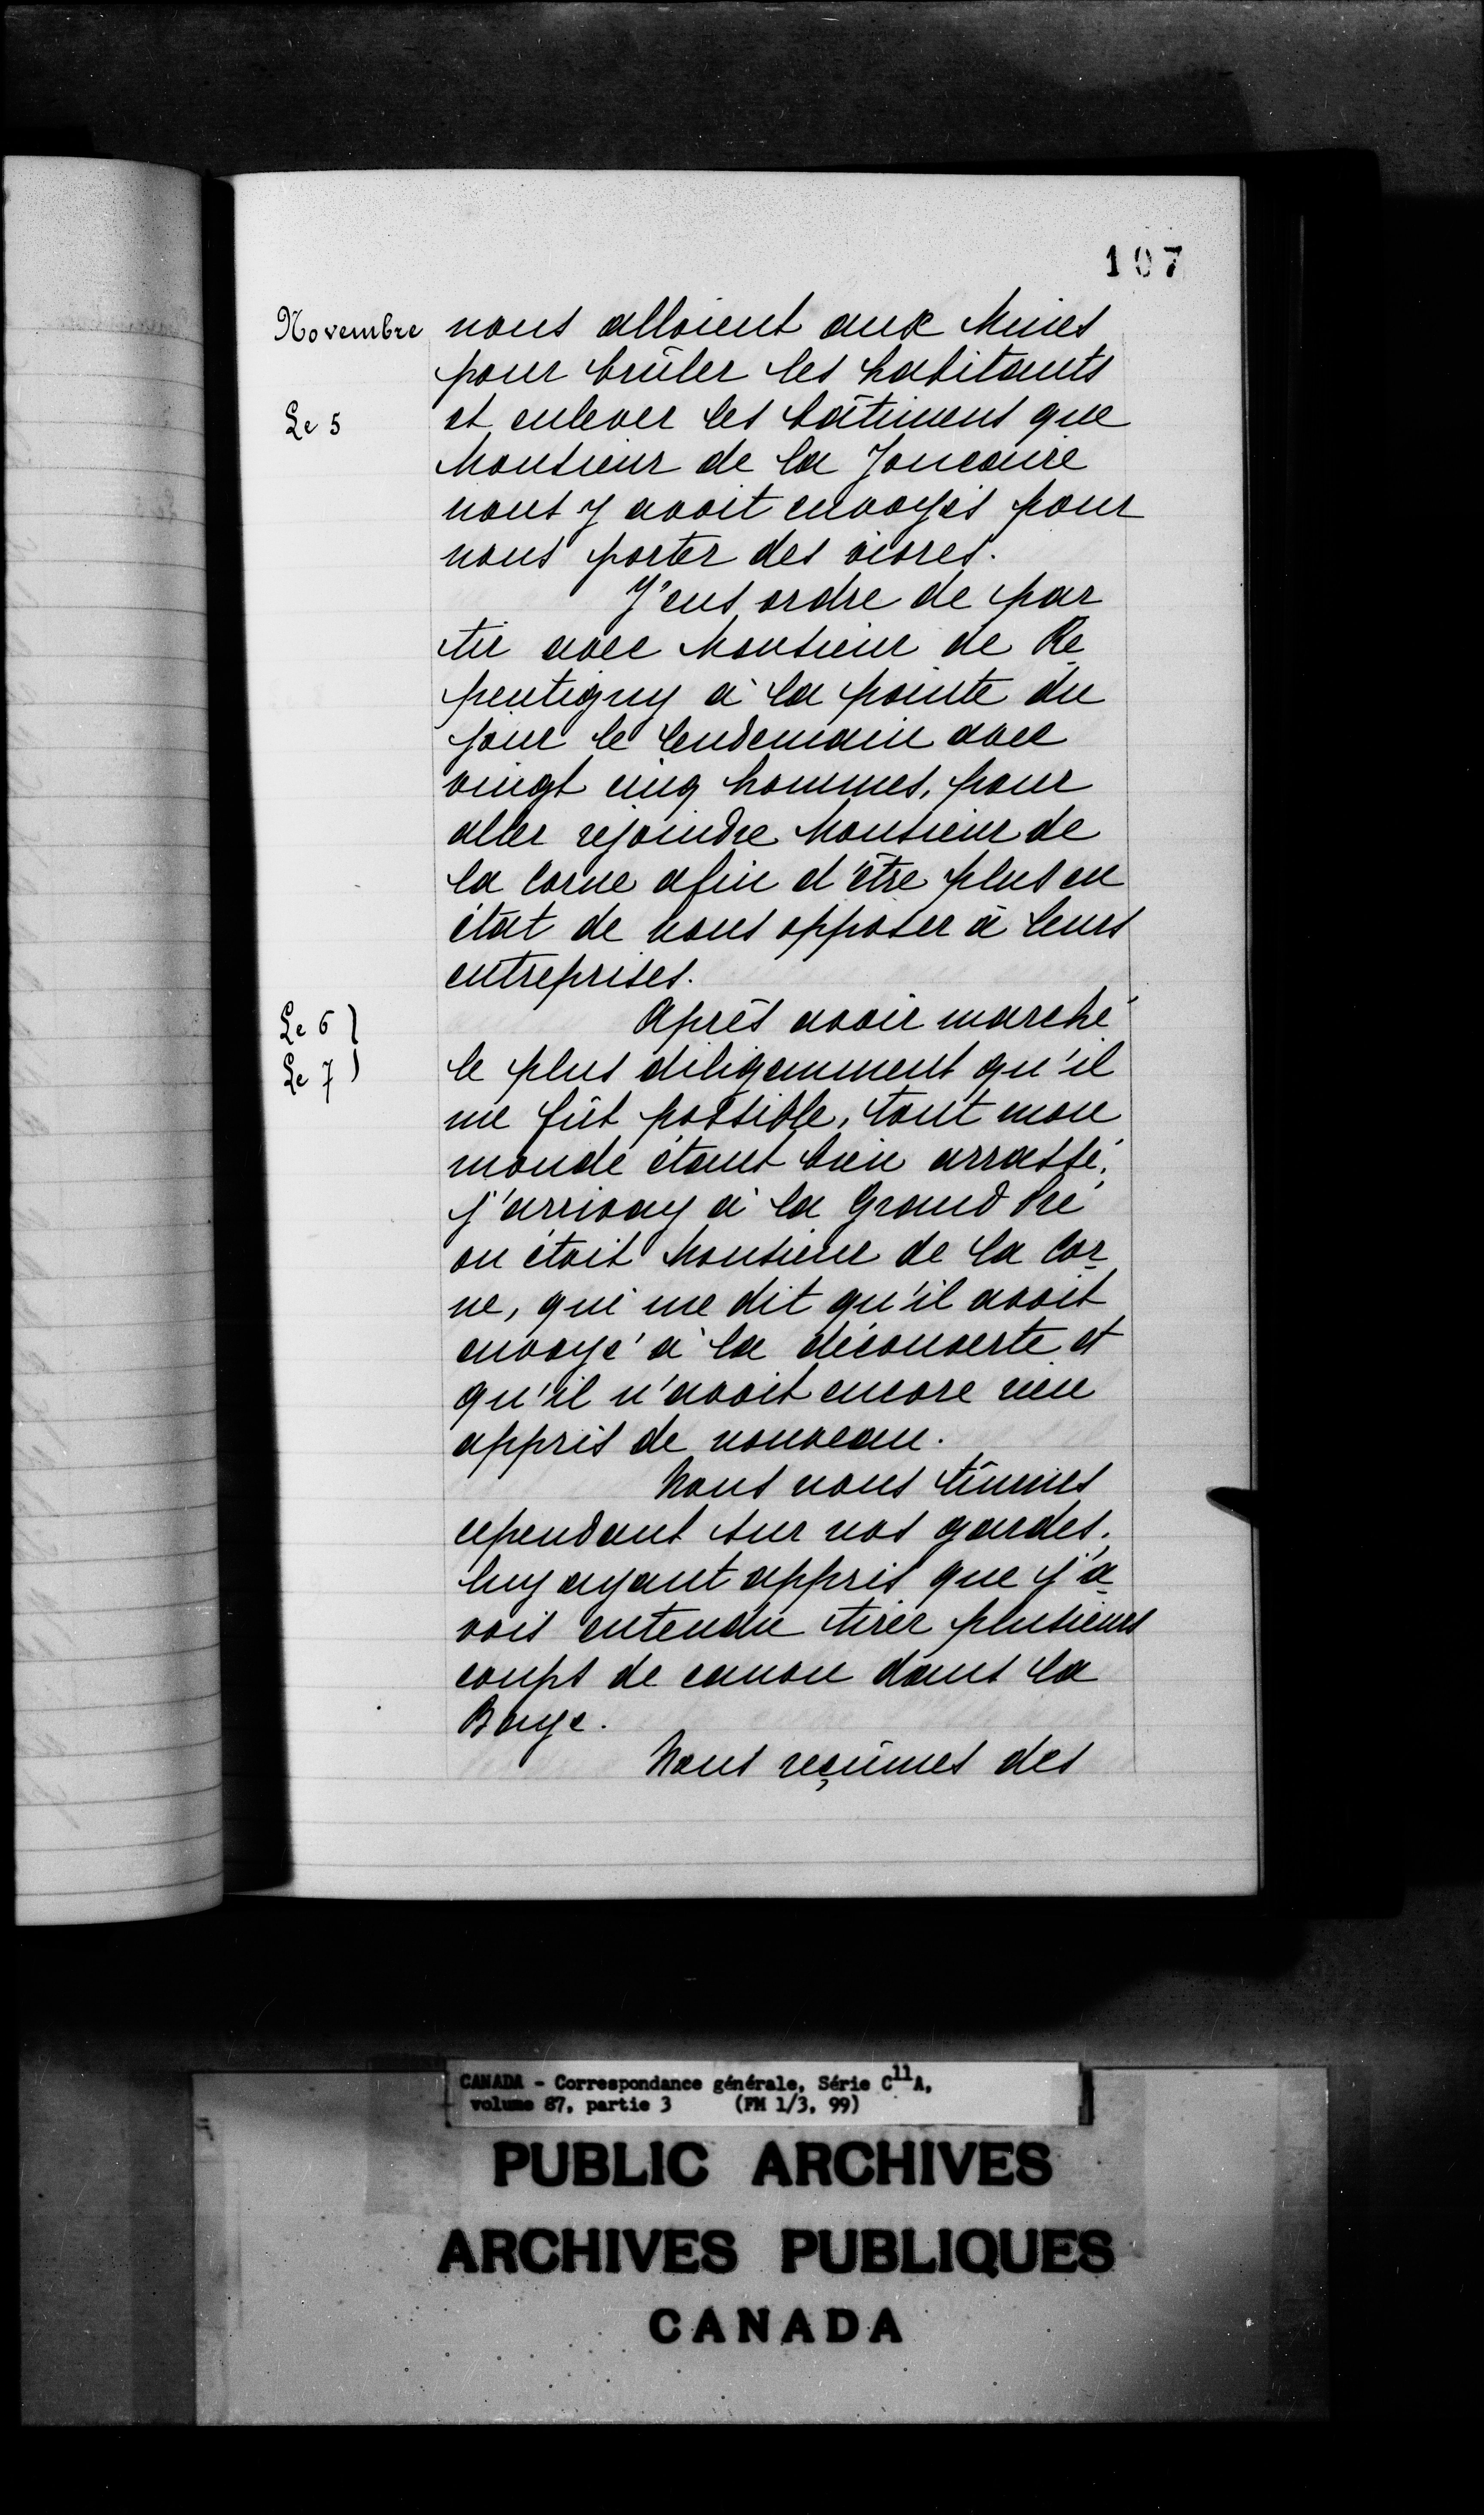 107
Novembre nous alloient aux Mines
pour brûler les habitants
Le 5 et enlever les bâtiments que
Monsieur de la Joncaire
nous y avoit envoyés pour
nous porter des vivres.
J'eus ordre de par
tir avec Monsieur de Re
pentigny à la pointe du
jour le lendemain avec
vingt cinq hommes, pour
aller rejoindre Monsieur de
la Corne afin d'être plus en
état de nous opposer à leurs
entreprises.
Le 6 } Après avoir marché
Le 7 ) le plus diligemment qu'il
me fût possible, tout mon
monde étant bien arrassé,
j'arrivay à la Grand Pré
ou étoit Monsieur de la Cor
ne, qui me dit qu'il avoit
envoyé à la découverte et
qu'il n'avoit encore rien
appris de nouveau.
Nous nous tinmes
cependant sur nos gardes,
luy ayant appris que j'a
vois entendu tirer plusieurs
coups de canon dans la
Baye.
Nous reçûmes des
CANADA - Correspondance générale, Série C11A,
volume 87, partie 3 (FM 1/3, 99)
PUBLIC ARCHIVES
ARCHIVES PUBLIQUES
CANADA